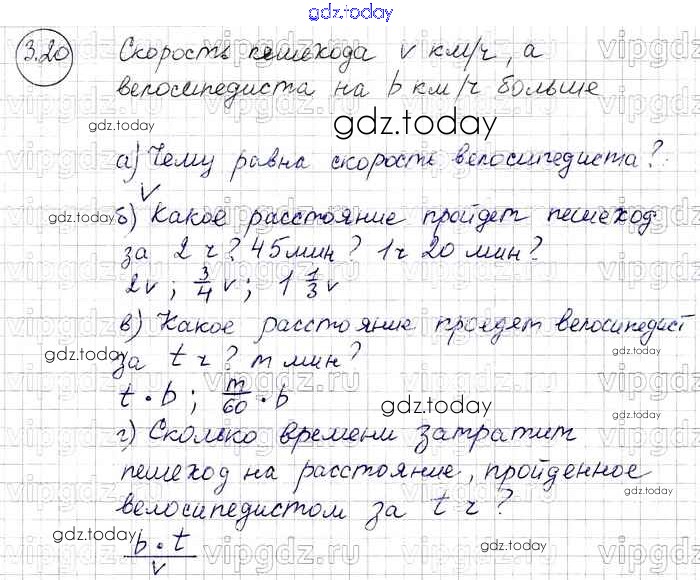 gdz.today
3.20 Скорость пешехода v км/ч, а
велосипедиста на b км/ч больше
gdz.today
gdz.today
а) Чему равна скорость велосипедиста?
v
gdz.today
б) Какое расстояние пройдет пешеход
за 2 ч? 45 мин? 1ч 20 мин?
2v ; 3/4 v ; 1 1/3 v
в) Какое расстояние проедет велосипедист
gdz.today
за t ч? m мин?
t · b ; m/60 · b
gdz.today
г) Сколько времени затратит
пешеход на расстояние, пройденное
gdz.today
велосипедистом за t ч?
gdz.today
b · t / v
vipgdz.ru